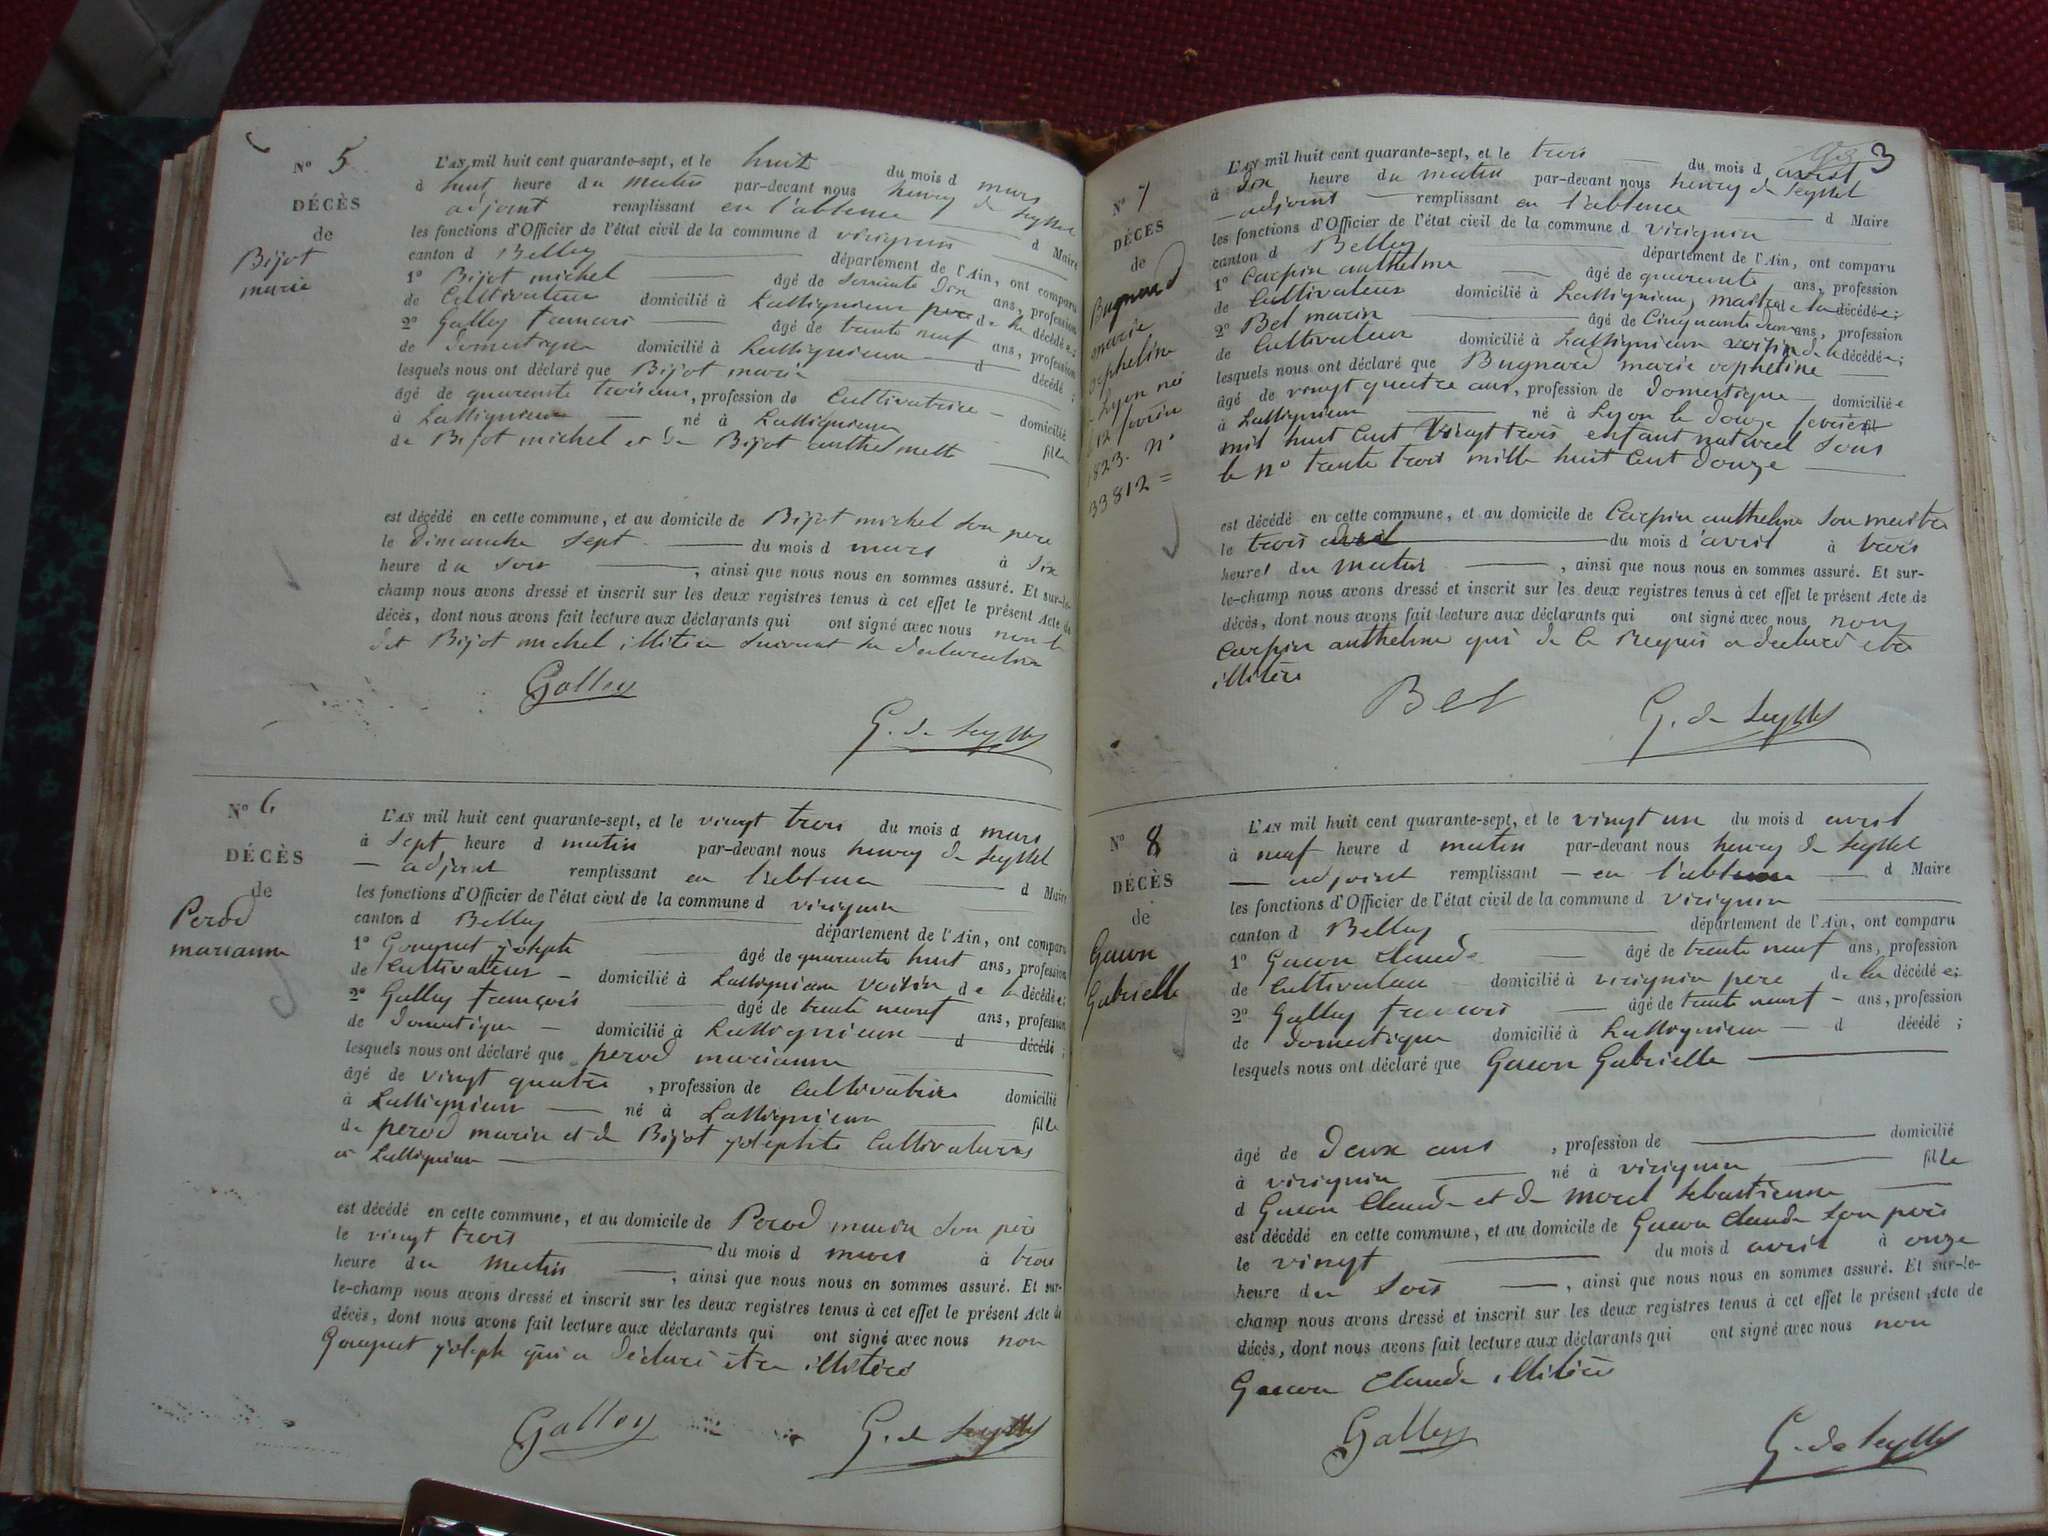 N° 5
DÉCÈS
de
Bijot
marie
L'AN mil huit cent quarante-sept, et le huit du mois d mars
à huit heure du matin par-devant nous henry de Seyssel
adjoint remplissant en l'absence d Maire
les fonctions d'Officier de l'état civil de la commune d virignin
canton d Belley département de l'Ain, ont comparu
1° Bijot michel âgé de Soixante dix ans, profession
de Cultivateur domicilié à Lassignieu pere de la décédée;
2° Galley francois âgé de trente neuf ans, profession
de Domestique domicilié à Lassignieu d décédé;
lesquels nous ont déclaré que Bijot marie
âgé de quarente trois ans, profession de Cultivatrice domicilié
à Lassignieu né à Lassignieu fille
de Bijot michel et de Bijot anthelmette
est décédé en cette commune, et au domicile de Bijot michel Son pere
le dimanche Sept du mois d mars à Six
heure du Soir, ainsi que nous nous en sommes assuré. Et sur-le-
champ nous avons dressé et inscrit sur les deux registres tenus à cet effet le présent Acte de
décès, dont nous avons fait lecture aux déclarants qui ont signé avec nous non le
dit Bijot michel illitéré Suivant Sa declaration
Galley
G. de Seyssel
N° 6
DÉCÈS
de
Perod
marianne
L'AN mil huit cent quarante-sept, et le vingt trois du mois d mars
à Sept heure d matin par-devant nous henry de Seyssel
adjoint remplissant en l'absence d Maire
les fonctions d'Officier de l'état civil de la commune d virignin
canton d Belley département de l'Ain, ont comparu
1° Gouquet joseph âgé de quarante huit ans, profession
de Cultivateur domicilié à Lassignieu voisin de la décédée;
2° Galley françois âgé de trente neuf ans, profession
de Domestique domicilié à Lassignieu d décédé;
lesquels nous ont déclaré que perod marianne
âgé de vingt quatre, profession de Cultivatrice domicilié
à Lassignieu né à Lassignieu fille
de perod marin et de Bijot josephte Cultivateurs
à Lassignieu
est décédé en cette commune, et au domicile de Perod marin Son père
le vingt trois du mois d mars à trois
heure du matin, ainsi que nous nous en sommes assuré. Et sur-
le-champ nous avons dressé et inscrit sur les deux registres tenus à cet effet le présent Acte de
décès, dont nous avons fait lecture aux déclarants qui ont signé avec nous non
Gouquet joseph qui a déclaré être illitéré
Galley
G. de Seyssel
3
N° 7
DÉCÈS
de
Bugnard
marie
orpheline
Lyon né
12 fevrier
1823. N°
33812=
L'AN mil huit cent quarante-sept, et le trois du mois d avril
à dix heure du matin par-devant nous henry de Seyssel
adjoint remplissant en l'absence d Maire
les fonctions d'Officier de l'état civil de la commune d virignin
canton d Belley département de l'Ain, ont comparu
1° Carpin anthelme âgé de quarente ans, profession
de Cultivateur domicilié à Lassignieu, maitre de la décédée;
2° Bel marin âgé de Cinquante deux ans, profession
de Cultivateur domicilié à Lassignieu voisin de la décédée;
lesquels nous ont déclaré que Bugnard marie orpheline
âgé de vingt quatre ans, profession de Domestique domiciliée
à Lassignieu né à Lyon le douze fevrier
mil huit cent vingt trois enfant naturel Sous
le n° trente trois mille huit cent douze
est décédé en cette commune, et au domicile de Carpin anthelme Son maitre
le trois avril du mois d'avril à trois
heures du matin, ainsi que nous nous en sommes assuré. Et sur-
le-champ nous avons dressé et inscrit sur les deux registres tenus à cet effet le présent Acte de
décès, dont nous avons fait lecture aux déclarants qui ont signé avec nous non
Carpin anthelme qui de ce Requis a declaré etre
illitéré
Bel
G. de Seyssel
N° 8
DÉCÈS
de
Gacon
Gabrielle
L'AN mil huit cent quarante-sept, et le vingt un du mois d avril
à neuf heure d matin par-devant nous henry de Seyssel
adjoint remplissant en l'absence d Maire
les fonctions d'Officier de l'état civil de la commune d virignin
canton d Belley département de l'Ain, ont comparu
1° Gacon Claude âgé de trente neuf ans, profession
de Cultivateur domicilié à virignin pere de la décédée;
2° Galley francois âgé de trente neuf ans, profession
de Domestique domicilié à Lassignieu d décédé;
lesquels nous ont déclaré que Gacon Gabrielle
âgé de Deux ans, profession de domicilié
à virignin né à virignin fille
d Gacon Claude et de morel Sebastienne
est décédé en cette commune, et au domicile de Gacon Claude Son père
le vingt du mois d avril à onze
heure du Soir, ainsi que nous nous en sommes assuré. Et sur-le-
champ nous avons dressé et inscrit sur les deux registres tenus à cet effet le présent Acte de
décès, dont nous avons fait lecture aux déclarants qui ont signé avec nous non
Gacon Claude illitéré
Galley
G. de Seyssel